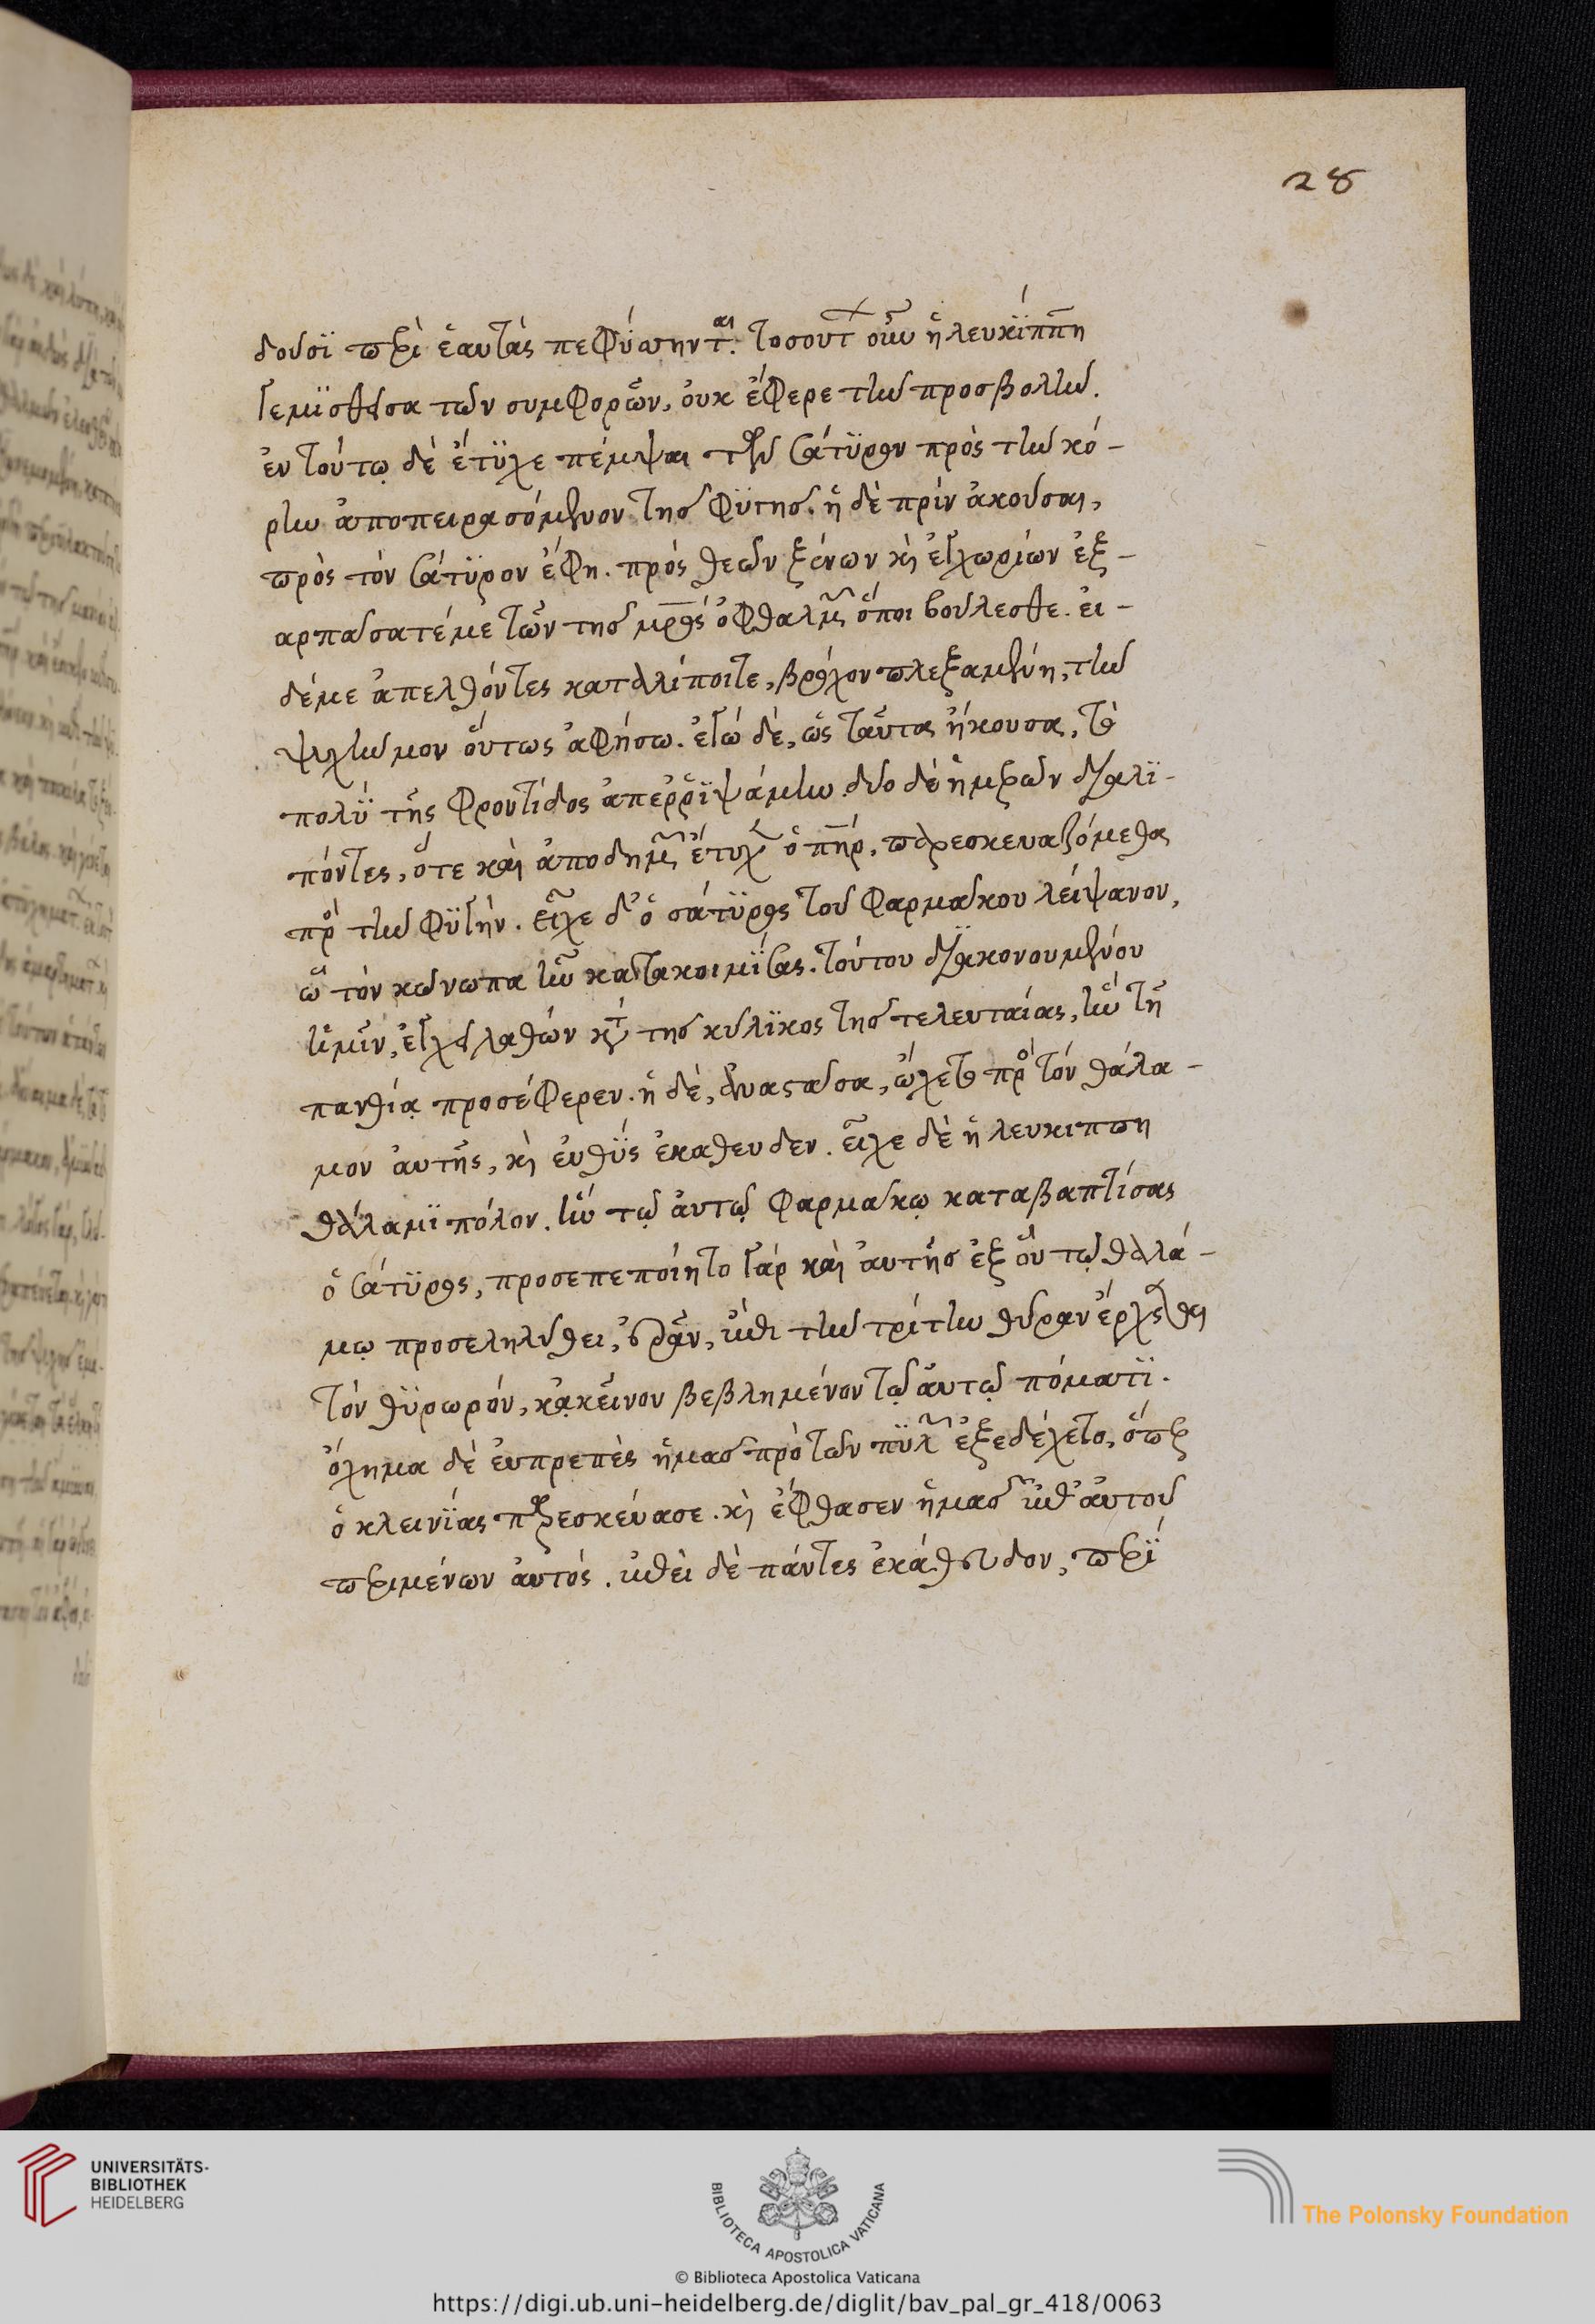 28
δουσϊ περὶ ἑαυτὰς πεφύσηνται. τοσούτων οὖν ἡ λευκΐππη
γεμϊσθεῖσα τῶν συμφορῶν, οὐκ ἔφερε τὴν προσβολήν.
ἐν τούτῳ δὲ ἔτϋχε πέμψαι τὸν σάτϋρον πρὸς τὴν κό-
ρην ἀποπειρασόμενον τῆσ φϋγῆσ. ἡ δὲ πρὶν ἀκοῦσαι,
πρὸς τὸν σάτϋρον ἔφη. πρὸς θεῶν ξένων καὶ ἐγχωρίων ἐξ-
αρπάσατέ με τῶν τῆσ μρὸς ὀφθαλμῶν ὅποι βούλεσθε. εἰ-
δέ με ἀπελθόντες καταλίποιτε, βρόχον πλεξαμένη, τὴν
ψυχήν μου οὕτως ἀφήσω. ἐγὼ δὲ, ὡς ταῦτα ἤκουσα, τὸ
πολὺ τῆς φροντίδος ἀπερρϊψάμην. δύο δὲ ἡμερῶν διαλϊ-
πόντες, ὅτε καὶ ἀποδημῶν ἔτυχεν ὁ πηρ, παρεσκευαζόμεθα
πρὸς τὴν φϋγήν. εἶχε δ' ὁ σάτϋρος τοῦ φαρμάκου λείψανον,
ᾧ τὸν κώνωπα ἦν κατακοιμΐσας. τούτου διακονουμένου
ἡμῖν, ἐγχεῖ λαθὼν κατὰ τῆσ κύλϊκος τῆσ τελευταίας, ἣν τῇ
πανθίᾳ προσέφερεν. ἡ δὲ, ἀναστᾶσα, ᾤχετο πρὸς τὸν θάλα-
μον αὐτῆς, καὶ εὐθὺς ἐκάθευδεν. εἶχε δὲ ἡ λευκίππη
θαλαμϊπόλον. ἣν τῷ αὐτῷ φαρμάκῳ καταβαπτίσας
ὁ σάτϋρος, προσεπεποίητο γὰρ καὶ αὐτῆσ ἐξ οὗ τῷ θαλά-
μῳ προσεληλύθει, ἐρᾶν, ἐπὶ τὴν τρίτην θύραν ἔρχεται
τὸν θϋρωρόν, κἀκεῖνον βεβλημένον τῷ αὐτῷ πόματϊ.
ὄχημα δὲ εὐπρεπὲς ἡμᾶσ πρὸ τῶν πϋλῶν ἐξεδέχετο, ὅπερ
ὁ κλεινΐας παρεσκεύασε. καὶ ἔφθασεν ἡμᾶσ ἐπ' αὐτοῦ
περιμένων αὐτός. ἐπεὶ δὲ πάντες ἐκάθευδον, περϊ
UNIVERSITÄTS-
BIBLIOTHEK
HEIDELBERG
BIBLIOTECA APOSTOLICA VATICANA
The Polonsky Foundation
© Biblioteca Apostolica Vaticana
https://digi.ub.uni-heidelberg.de/diglit/bav_pal_gr_418/0063